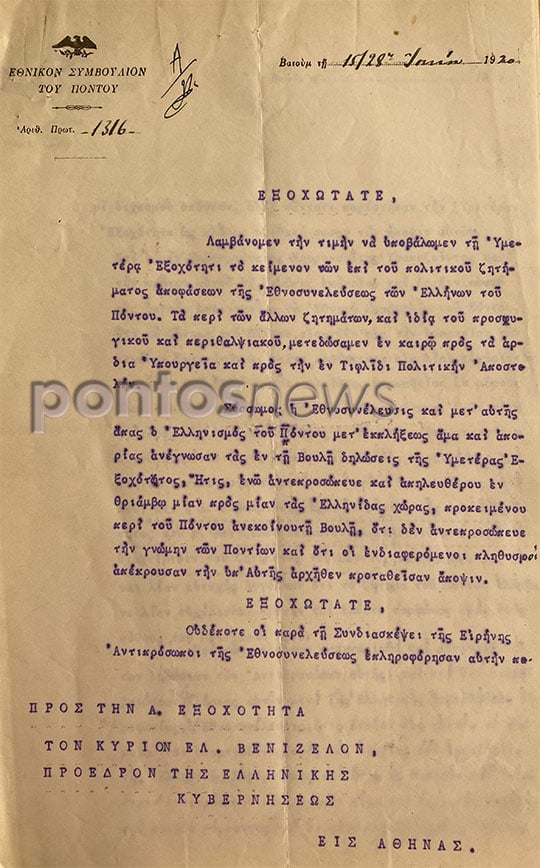 ΕΘΝΙΚΟΝ ΣΥΜΒΟΥΛΙΟΝ
ΤΟΥ ΠΟΝΤΟΥ
Ἀριθ. Πρωτ. -1316-
Βατοὺμ τῇ 15/28ῃ Ἰουνίου 1920
ΕΞΟΧΩΤΑΤΕ,
Λαμβάνομεν τὴν τιμὴν νὰ ὑποβάλωμεν τῇ Ὑμε-
τέρᾳ Ἐξοχότητι τὸ κείμενον τῶν ἐπὶ τοῦ πολιτικοῦ ζητή-
ματος ἀποφάσεων τῆς Ἐθνοσυνελεύσεως τῶν Ἑλλήνων τοῦ
Πόντου. Τὰ περὶ τῶν ἄλλων ζητημάτων, καὶ ἰδίᾳ τοῦ προσφυ-
γικοῦ καὶ περιθαλψιακοῦ, μετεδώσαμεν ἐν καιρῷ πρὸς τὰ ἁρ-
δια Ὑπουργεῖα καὶ πρὸς τὴν ἐν Τιφλίδι Πολιτικὴν Ἀποστο-
λήν.
pontosnews
Σύσσωμος ἡ Ἐθνοσυνέλευσις καὶ μετ' αὐτῆς
ἅπας ὁ Ἑλληνισμὸς τοῦ Πόντου μετ' ἐκπλήξεως ἅμα καὶ ἀπο-
ρίας ἀνέγνωσαν τὰς ἐν τῇ Βουλῇ δηλώσεις τῆς Ὑμετέρας Ἐ-
ξοχότητος, Ἥτις, ἐνῶ ἀντεπροσώπευε καὶ ἀπηλευθέρου ἐν
θριάμβῳ μίαν πρὸς μίαν τὰς Ἑλληνίδας χώρας, προκειμένου
περὶ τοῦ Πόντου ἀνεκοίνου τῇ Βουλῇ, ὅτι δὲν ἀντεπροσώπευε
τὴν γνώμην τῶν Ποντίων καὶ ὅτι οἱ ἐνδιαφερόμενοι πληθυσμοὶ
ἀπέκρουσαν τὴν ὑπ' Αὐτῆς ἀρχῆθεν προταθεῖσαν ἄποψιν.
ΕΞΟΧΩΤΑΤΕ,
Οὐδέποτε οἱ παρὰ τῇ Συνδιασκέψει τῆς Εἰρήνης
Ἀντιπρόσωποι τῆς Ἐθνοσυνελεύσεως ἐπληροφόρησαν αὐτὴν πε-
ΠΡΟΣ ΤΗΝ Α. ΕΞΟΧΟΤΗΤΑ
ΤΟΝ ΚΥΡΙΟΝ ΕΛ. ΒΕΝΙΖΕΛΟΝ,
ΠΡΟΕΔΡΟΝ ΤΗΣ ΕΛΛΗΝΙΚΗΣ
ΚΥΒΕΡΝΗΣΕΩΣ
ΕΙΣ ΑΘΗΝΑΣ.